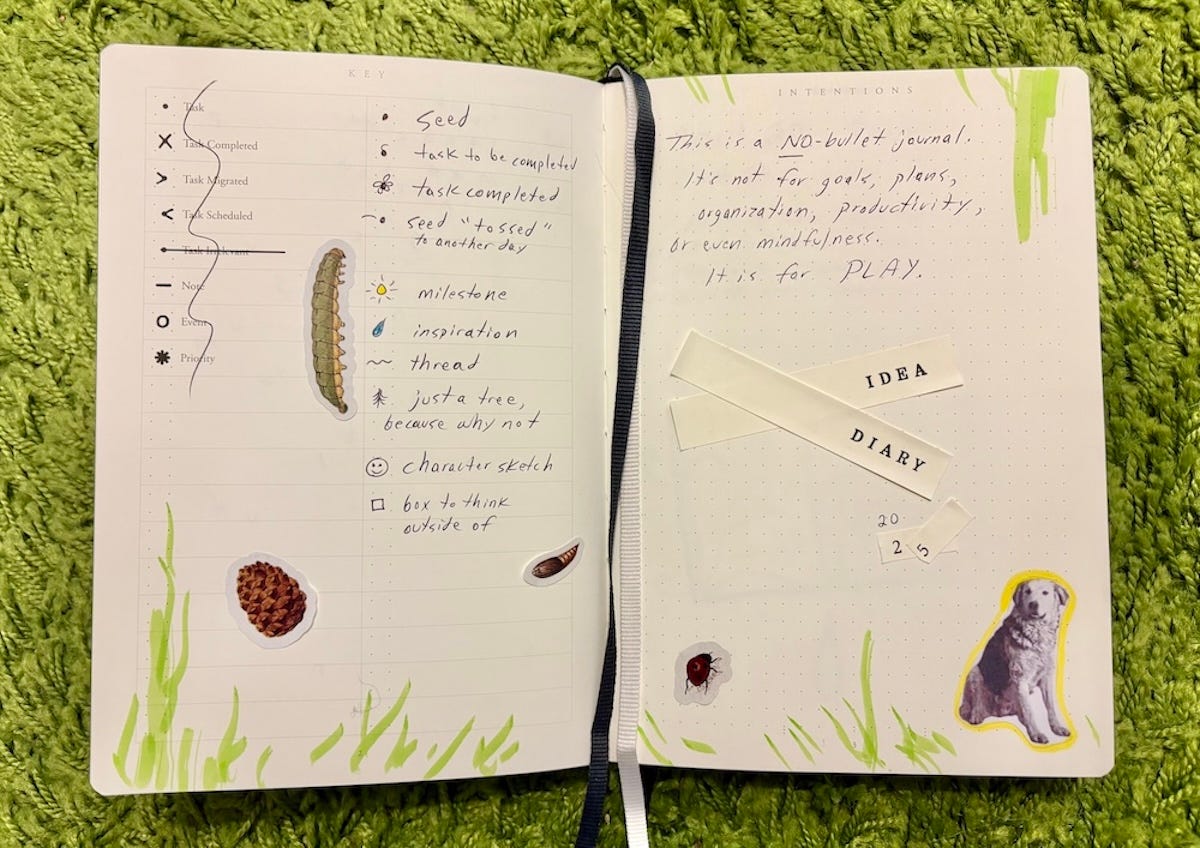 KEY
Task
Task Completed
Task Migrated
Task Scheduled
Task Irrelevant
Note
Event
Priority
seed
task to be completed
task completed
seed "tossed"
to another day
milestone
inspiration
thread
just a tree,
because why not
character sketch
box to think
outside of
INTENTIONS
This is a NO-bullet journal.
It's not for goals, plans,
organization, productivity,
or even mindfulness.
It is for PLAY.
IDEA
DIARY
20
25